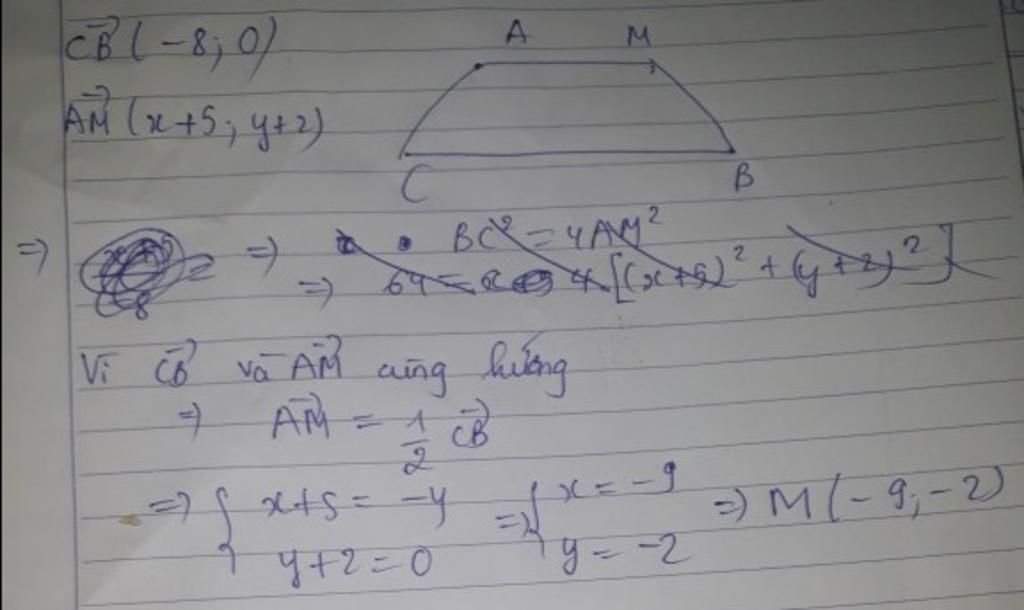 CB→ (-8; 0)
A M
AM→ (x+5; y+2)
C B
=> => BC² = 4AM²
=> 64 = 4[(x+5)² + (y+2)²]
Vì CB→ và AM→ cùng hướng
=> AM→ = 1/2 CB→
=> { x+5 = -4 => { x = -9 => M(-9; -2)
y+2 = 0 y = -2